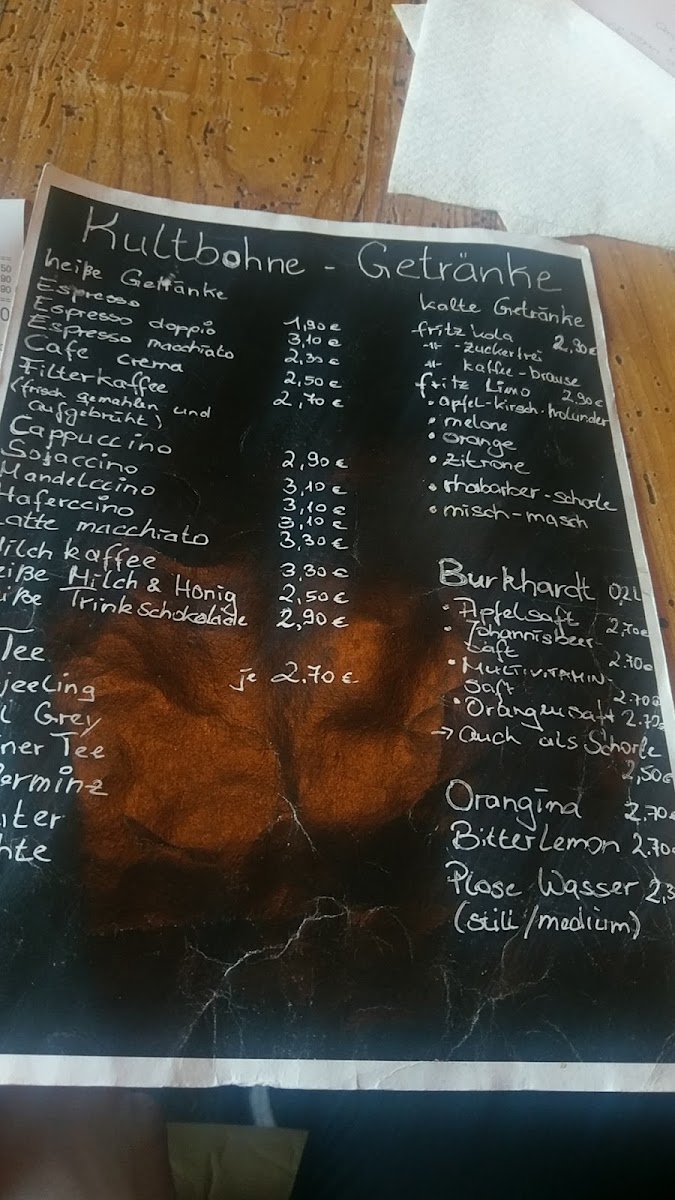 Kultbohne - Getränke
heiße Getränke
Espresso 1,90 €
Espresso doppio 3,10 €
Espresso macchiato 2,30 €
Cafe Crema 2,50 €
Filterkaffee 2,70 €
(frisch gemahlen und
aufgebrüht)
Cappuccino 2,90 €
Sojaccino 3,10 €
Mandelccino 3,10 €
Haferccino 3,10 €
Latte macchiato 3,30 €
Milchkaffee 3,30 €
eiße Milch & Honig 2,50 €
iße Trinkschokolade 2,90 €
Tee je 2.70 €
jeeling
l Grey
ner Tee
erminz
uter
hte
kalte Getränke
fritz kola 2,90€
-"- -zuckerfrei
-"- kaffee-brause
fritz Limo 2,90€
• apfel-kirsch-holunder
• melone
• orange
• zitrone
• rhabarber-schorle
• misch-masch
Burkhardt 0,2L
• Apfelsaft 2,70€
• Johannisbeer
saft 2.70€
• MULTIVITAMIN-
saft 2.70€
• Orangensaft 2.70
→ auch als Schorle
2,50€
Orangina 2.70€
Bitter Lemon 2.70
Plose Wasser 2,3
(still/medium)
50
90
80
0